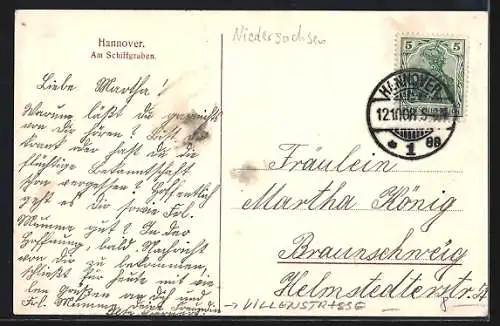 Hannover.
Am Schiffgraben.
Niedersachsen
Liebe Martha!
Warum läßt du garnichts
von dir hören? Bist du
krank oder hast du die
flüchtige Bekanntschaft
schon vergessen? Hoffentlich
geht es dir sowie Frl.
Mimma gut? In der
Hoffnung, bald Nachricht
von dir zu bekommen,
schließt für heute mit vie
len Grüßen an dich und
Frl. Mimma deine Freundin
5
5
HANNOVER
12.10.08
1
Fräulein
Martha König
Braunschweig
Helmstedterstr.
→ VILLENSTRASSE